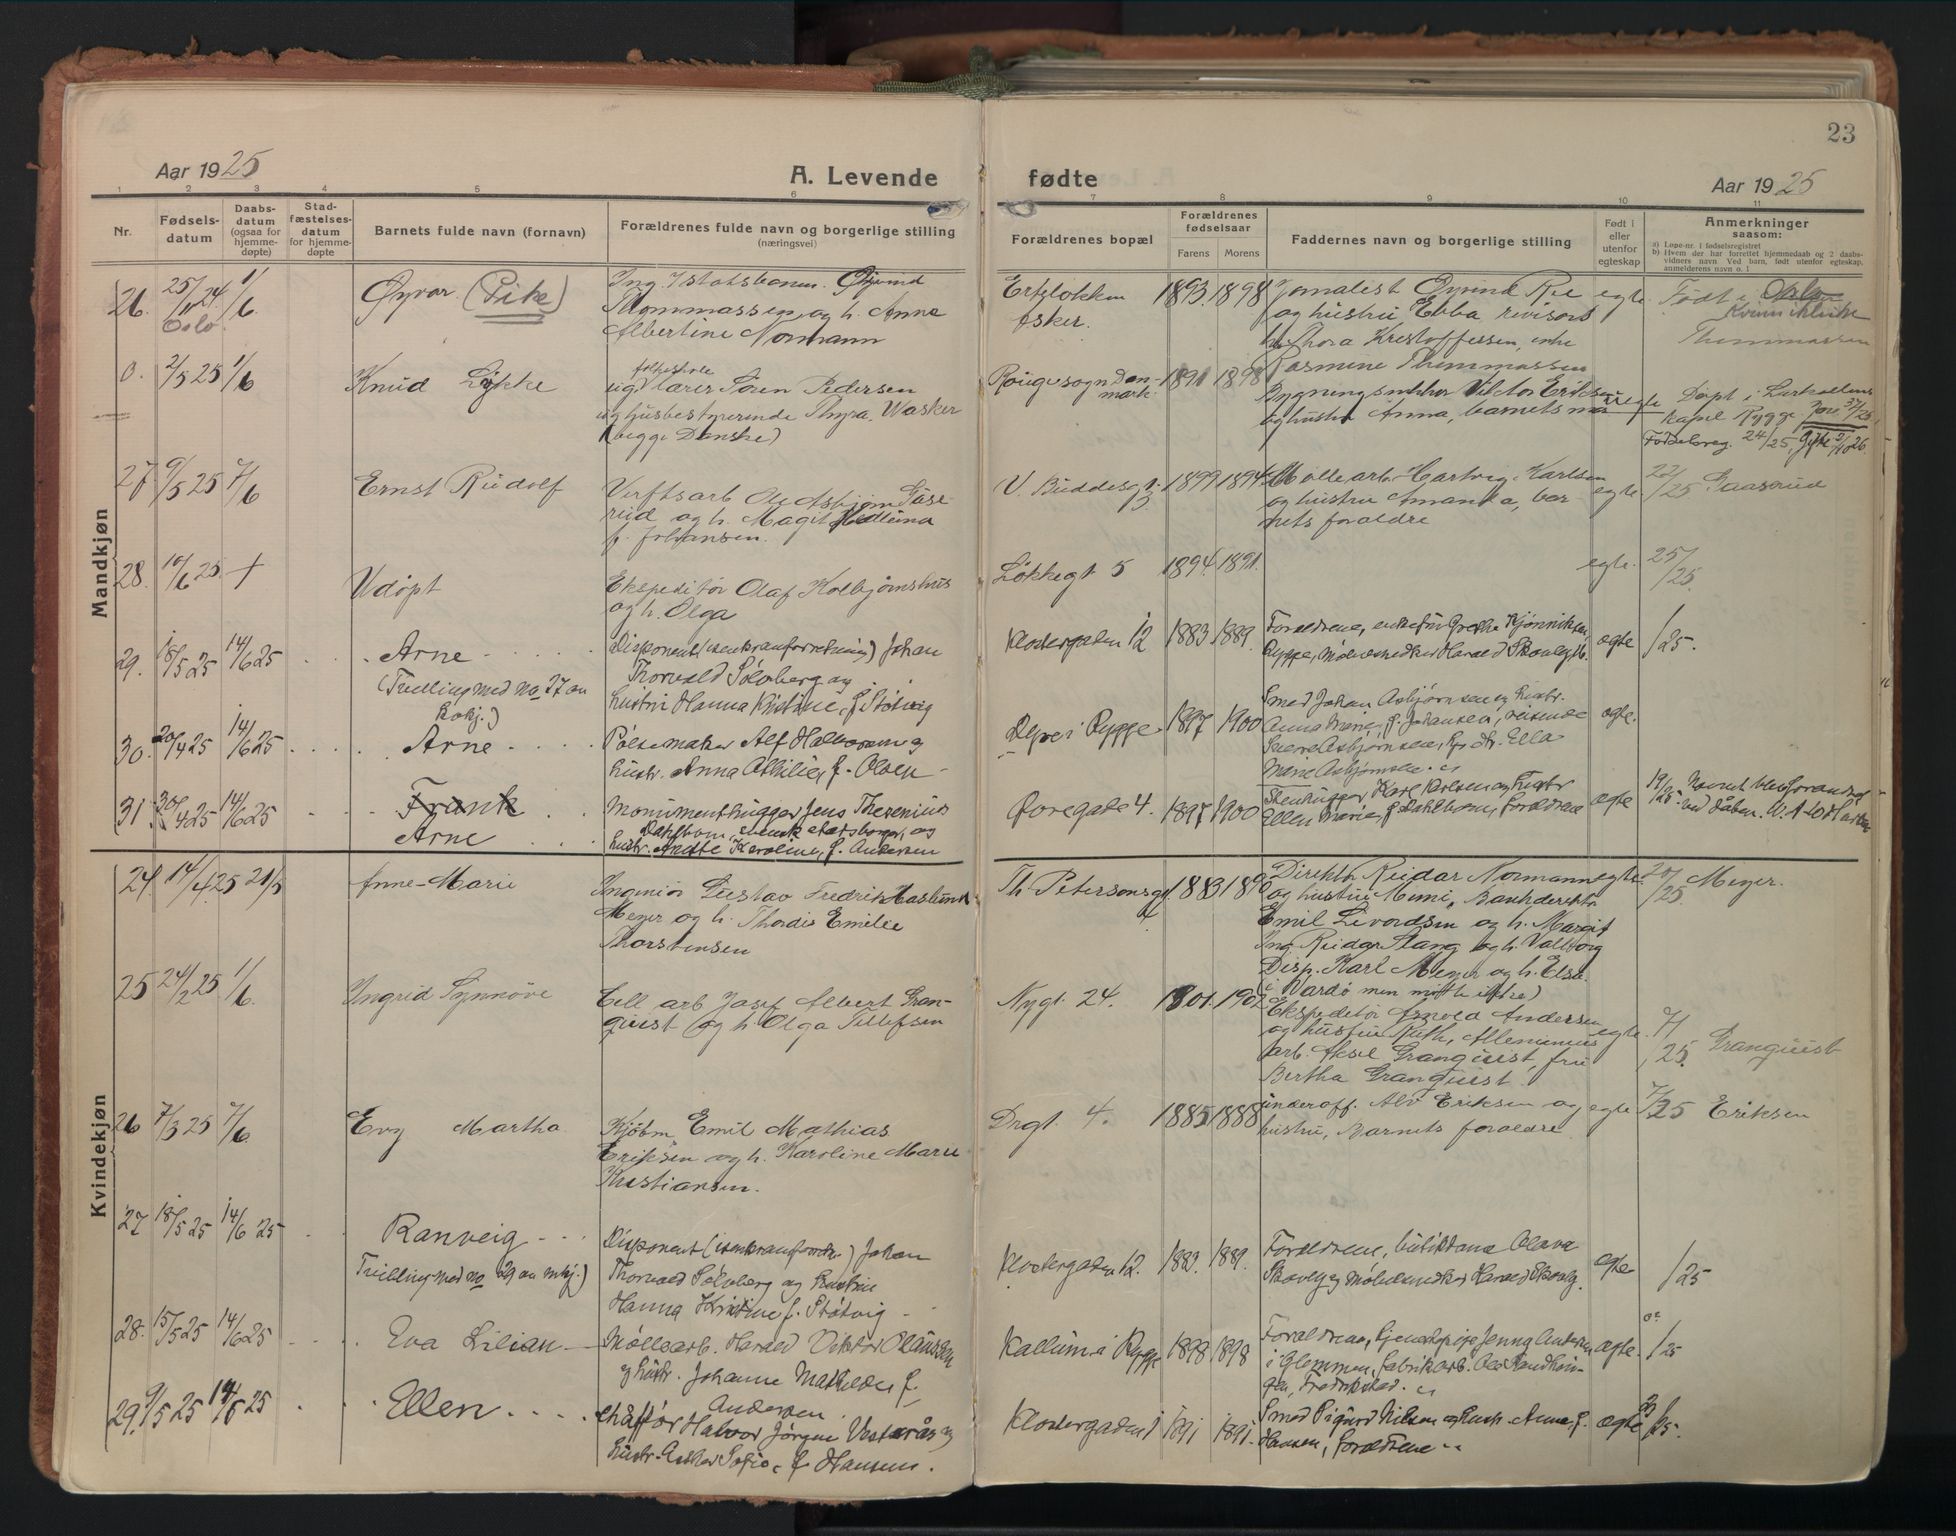 23
Aar 1925
A. Levende
fødte
Aar 1925
1 2 3 4 5 6 7 8 9 10 11
Nr.
Fødsels-
datum
Daabs-
datum
(ogsaa for
hjemme-
døpte)
Stad-
fæstelses-
datum
for hjemme-
døpte
Barnets fulde navn (fornavn)
Forældrenes fulde navn og borgerlige stilling
(næringsvei)
Forældrenes bopæl
Forældrenes
fødselsaar
Farens
Morens
Faddernes navn og borgerlige stilling
Født i
eller
utenfor
egteskap
Anmerkninger
saasom:
a) Løpe-nr. i fødselsregistret
b) Hvem der har forrettet hjemmedaab og 2 daabs-
vidners navn Ved barn, født utenfor egteskap,
anmelderens navn o. l
Mandkjøn
26. 25/11 24 1/6 Øyvar (Pike)
Oslo.
Thommassen og h. Anne
Albertine Normann
Asker. 1893 1898
Journalist Øyvind Rie
og hustru Ebba revisors
Thora Kristoffersen, enke
Rasmine Thommassen
egte. Født i Oslo
Kvinneklinikk
Thommassen
0. 2/5 25 1/6 Knud Lykke
folkeskole
lærer Søren Pedersen
og husbestyrerinde Thyra Wasker
(begge Danske)
Rougsogn Dan-
mark. 1891 1898
Viktor Eriksen
og hustru Anna, barnets mor
uegte Døpt i
kapel Rygge
Fødselsreg. 24/25
27 9/5 25 7/6 Ernst Rudolf
Verftsarb Ole Asbjørn Gåse-
rud og h. Magit Hedlema
f. Johansen.
V. Buddesgt. 13. 1899 1894
Møllearb. Hartvig Karlsen
og hustru Amanda, bar-
nets foraldre
egte. 22/25 Gaasrud
28. 10/6 25 + Udøpt
Ekspeditør Olaf Kolbjørnshus
og h. Olga
Løkkegt 5 1894. 1891.
egte. 25/25
29. 18/5 25 14/6 25 Arne
(Tvilling med no 27 av
kvkj.)
Disponent (isenkramforretning) Johan
Thorvald Sølvberg og
hustru Hanna Kristine, f. Støtvig
Klostergaden 12 1883 1889.
Forældrene, enkefru Grethe Kjønniksen,
Rygge, Møbelsnedker Harald Skovly
egte /25.
30. 20/4 25 14/6 25 Arne
Pølsemaker Alf Halvorsen og
hustr. Anna Othilie, f. Olsen
Dyre i Rygge 1897 1900
Smed Johan Asbjørnsen og hustr.
Anna Marie, f. Johansen, reisende
Sverre Asbjørnsen, Ella
Marie Asbjørnsen.
egte.
31. 30/4 25 14/6 25 Frank
Arne
Monumenthugger Jens Therenius
Dahlbom, svensk statsborger, og
hustr. Anette Karoline, f. Andersen
Øvregate 4. 1897 1900
Stenhugger Karl Karlsen og hustr
Ellen Marie, f. Dahlbom, forældrene
egte 19/25 Navnet blev forandret
ved dåben.
Kvindekjøn
24. 14/4 25 21/5 Anne-Marie
Ingeniør Gustav Fredrik Haslund
Meyer og h. Thordis Emilie
Thorstensen
Th. Petersonsgt. 1883 1890
Direktør Reidar Normann
og hustru Mimi, Bankdirektør
Emil Sivordsen og h. Margit
Ing. Reidar Stang og h. Valborg
Disp. Karl Meyer og h. Else
(i Vardø men møtte ikke)
egte. 20/25. Meyer.
25 24/2 25 1/6. Ingrid Synnøve
Cell arb Josef Albert Gran-
quist og h. Olga Tellefsen
Nygt. 24. 1901. 1902
Ekspeditør Arnold Andersen
og hustru Ruth,
arb. Aksel Granquist, fru
Bertha Granquist.
egte. 7/25. Granquist
26 7/3 25 7/6 Evy Martha
Kjøbm. Emil Mathias
Eriksen og h. Karoline Marie
Kristiansen.
Drgt. 4. 1885 1888
underoff. Alv Eriksen og
hustru, Barnets foraldre
egte 7/25 Eriksen
27 18/5 25 14/6 25 Ranveig
Tvilling med no 29 av mkj.)
Disponent (isenkramforr.) Johan
Thorvald Sølvberg og hustru
Hanna Kristine f. Støtvig
Klostergaden 12. 1883. 1889.
Forældrene, butikdame Olava
Skovly og Møbelsnedker Harald Skovly.
egte /25
28. 15/5 25 14/6 25 Eva Lilian
Møllearb. Harald Viktor Claussen
og hustr. Johanne Mathilde, f.
Andersen
Kallum i Rygge 1898 1898
Forældrene, tjenestepige Jenny Andersen
i Glemmen, fabrikarb. Ole Sandhin-
gen, Fredrikstad.
egte. /25
29. 9/5 25 14/6 25 Ellen
Chaffør Halvor Jørgen Vesterås og
hustr. Sofie, f. Hansen.
Klostergaden 1 1891 1891.
Smed Sigurd Nilsen og hustr. Anna, f.
Hansen, forældrene
egte /25.